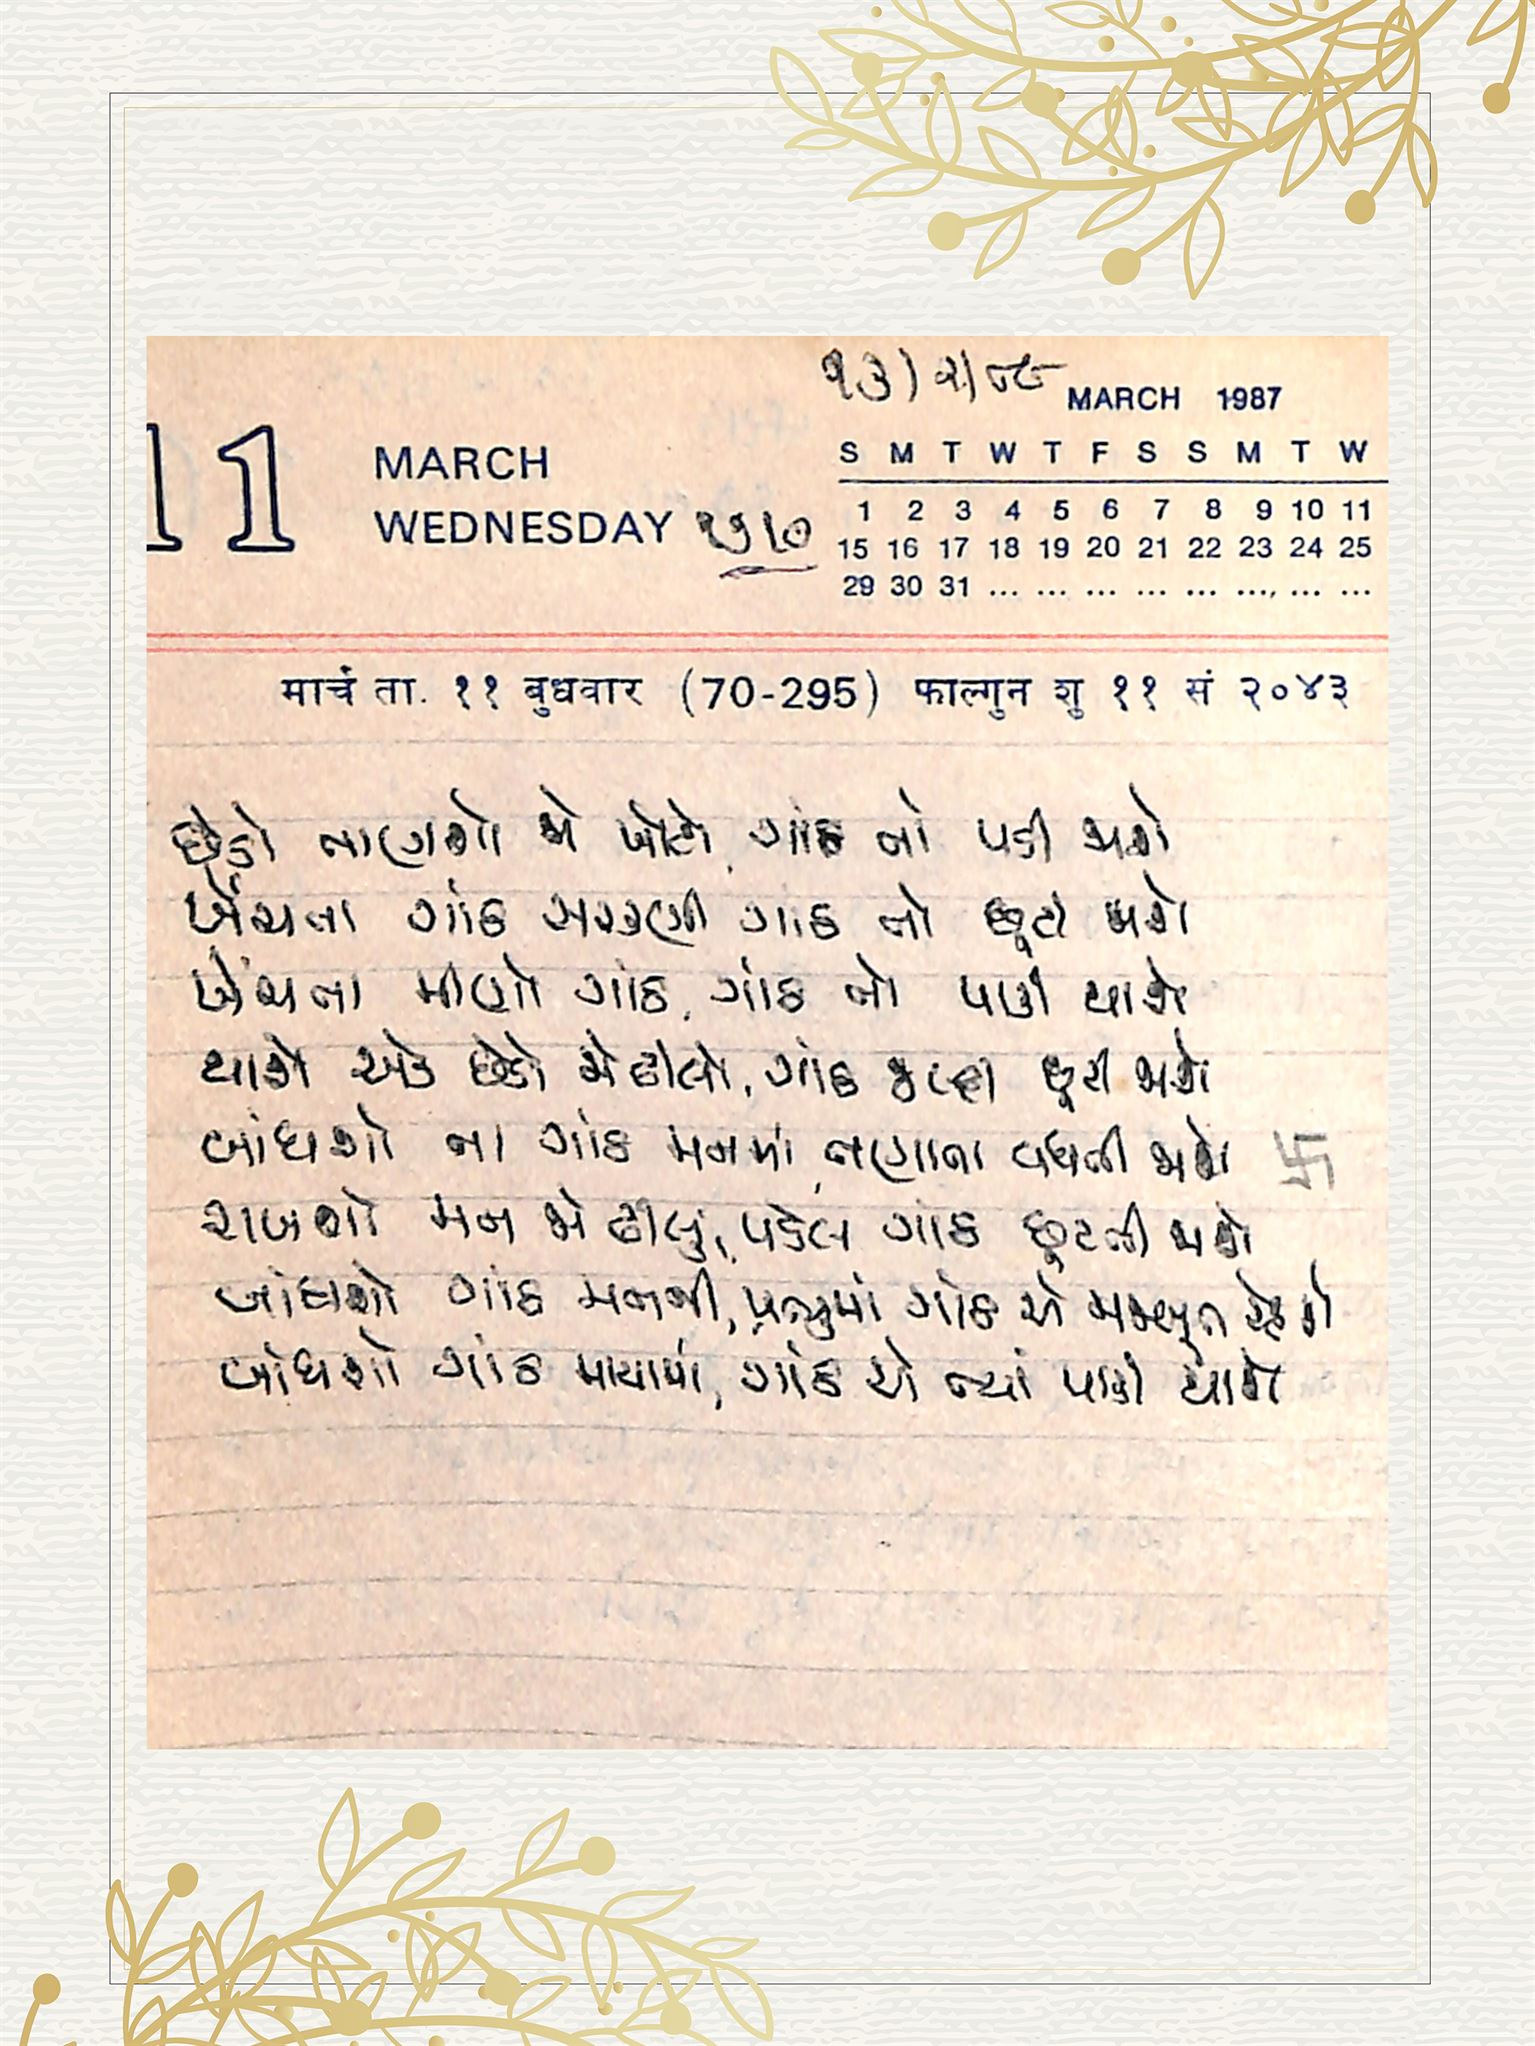 ૧૩) ૨/૮૮
MARCH 1987
11 MARCH
WEDNESDAY
S M T W T F S S M T W
1 2 3 4 5 6 7 8 9 10 11
15 16 17 18 19 20 21 22 23 24 25
29 30 31 ... ... ... ... ... ... ... ...
मार्च ता. ११ बुधवार (70-295) फाल्गुन शु ११ सं २०४३
છેડો તાણશો જો ખોટો, ગાંઠ તો પડી જાશે
ખેંચતા ગાંઠ સરકણી ગાંઠ તો છૂટી જાશે
ખેંચતા મીણો ગાંઠ, ગાંઠ તો પાકી થાશે
થાશે એક છેડો જો ઢીલો, ગાંઠ જલ્દી છૂટી જાશે
બાંધશો ના ગાંઠ મનમાં, તણાવા વધતી જાશે
રાખશો મન જો ઢીલું, પડેલ ગાંઠ છૂટતી જાશે
બાંધશો ગાંઠ મનની, પ્રભુમાં ગાંઠ એ મજબૂત રહેશે
બાંધશો ગાંઠ માયામાં, ગાંઠ એ ત્યાં પાકી થાશે